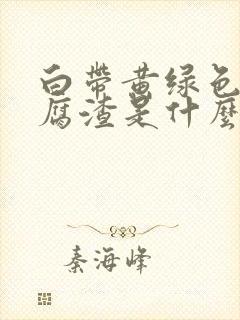 白带黄绿色
腐渣是什麽
秦海峰